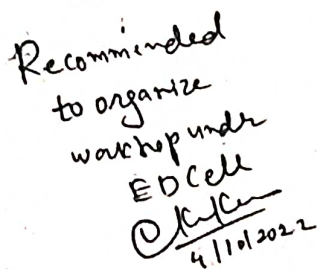 Recommended
to organize
workhop under
ED Cell
4/10/2022